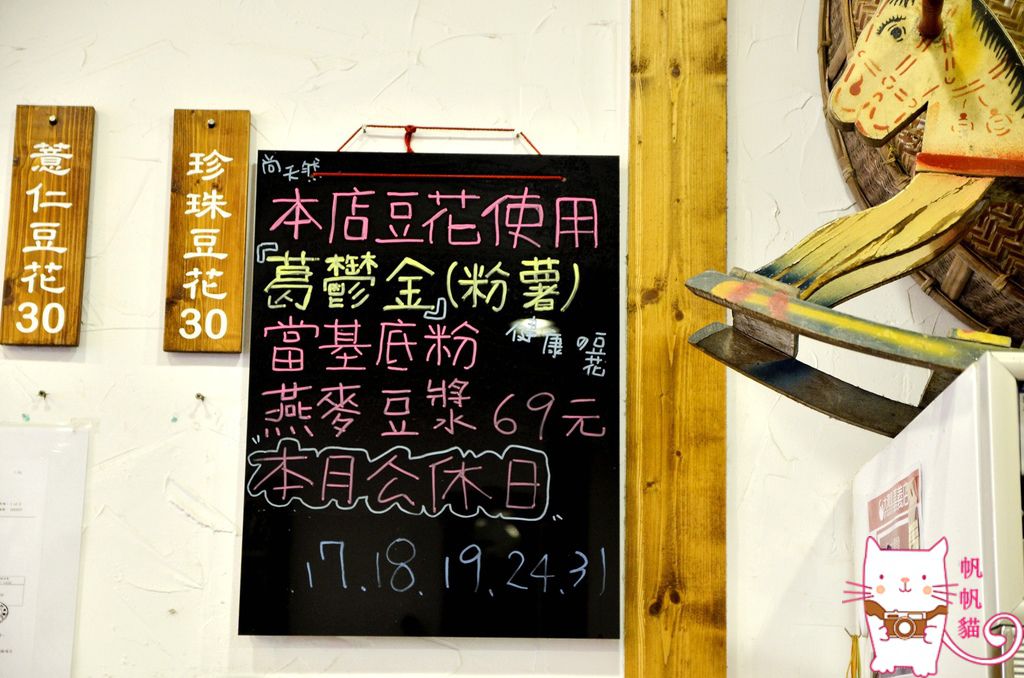 薏仁豆花30
珍珠豆花30
尚天然
本店豆花使用
『葛鬱金』(粉薯)
當基底粉
健康の豆花
燕麥豆漿 69元
"本月公休日"
17.18.19.24.31
帆帆貓